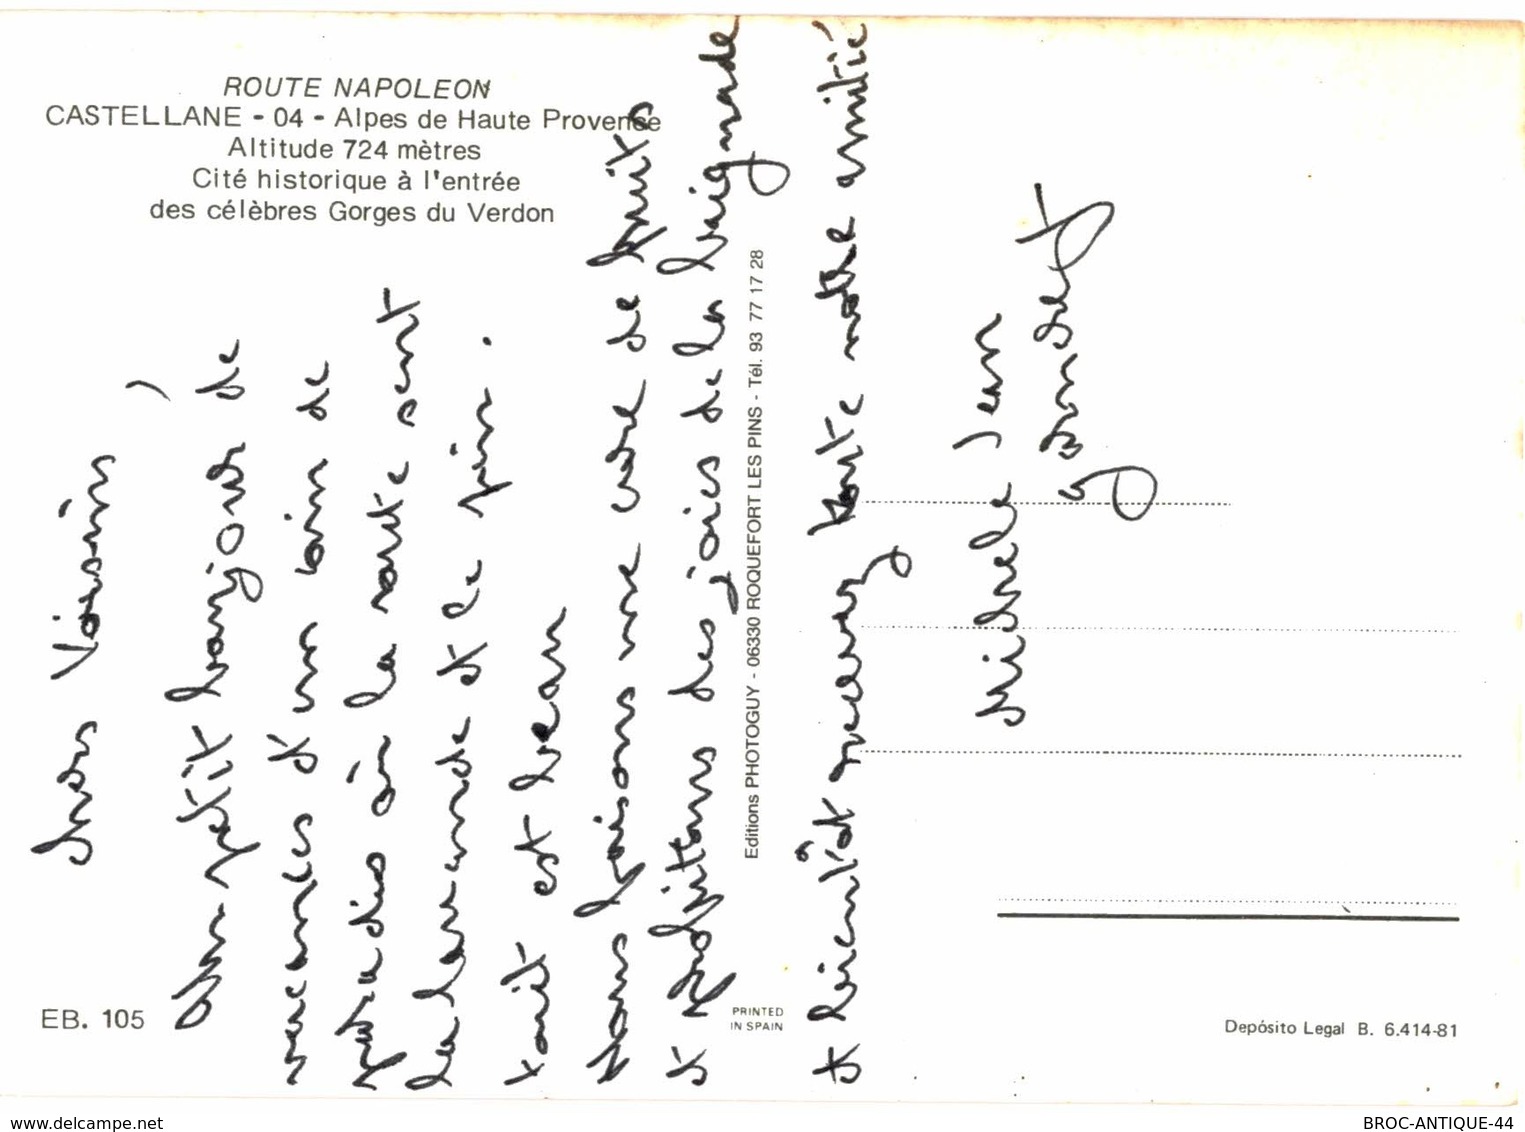 ROUTE NAPOLEON
CASTELLANE - 04 - Alpes de Haute Provence
Altitude 724 mètres
Cité historique à l'entrée
des célèbres Gorges du Verdon
Chers Voisins,
Un petit bonjour de
vacances d'un coin de
paradis où la route sent
la lavande et le pin.
tout est beau
Nous faisons une cure de fruits
et profitons des joies de la baignade
et bientôt recevez toute notre amitié
Michele Jean
EB. 105
Editions PHOTOGUY - 06330 ROQUEFORT LES PINS - Tél. 93 77 17 28
PRINTED
IN SPAIN
Depósito Legal B. 6.414-81
www.delcampe.net
BROC-ANTIQUE-44